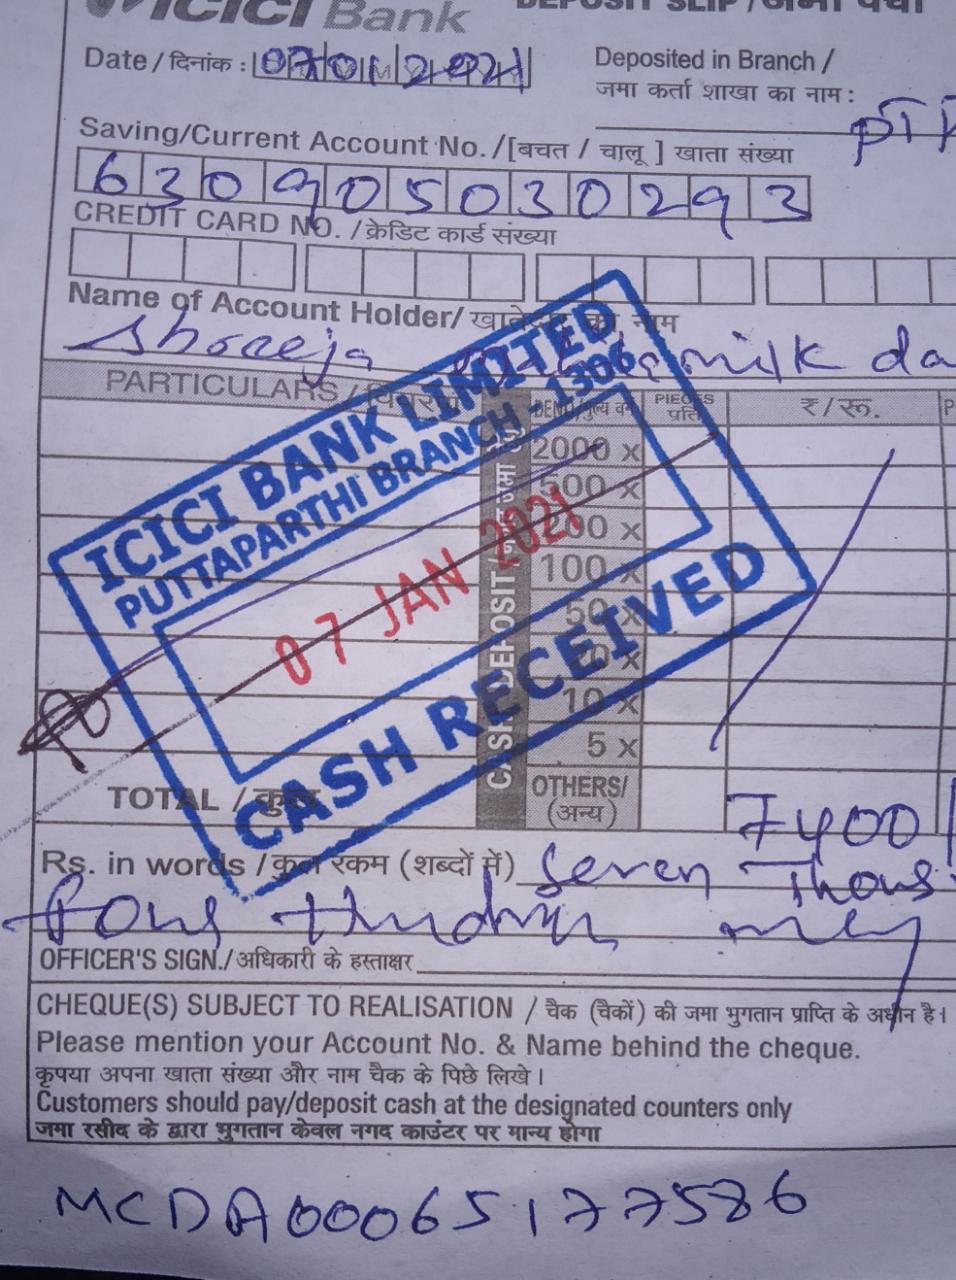 ICICI Bank DEPOSIT SLIP / जमा पर्ची
Date / दिनांक : 07012021
Deposited in Branch /
जमा कर्ता शाखा का नाम :
Saving/Current Account No. /[बचत / चालू ] खाता संख्या
630905030293
CREDIT CARD NO. /क्रेडिट कार्ड संख्या
Name of Account Holder/ खातेदार का नाम
milk da
PARTICULARS / विवरण
DENO/मूल्य वर्ग PIECES ₹/रू. P
प्रति
CASH DEPOSIT
2000 x
500 x
200 x
100 x
50 x
20 x
10 x
5 x
OTHERS/
(अन्य)
TOTAL / कुल
7400/
ICICI BANK LIMITED
PUTTAPARTHI BRANCH - 1306
07 JAN 2021
CASH RECEIVED
Rs. in words / कुल रकम (शब्दों में) Seven Thous
OFFICER'S SIGN./ अधिकारी के हस्ताक्षर
CHEQUE(S) SUBJECT TO REALISATION / चैक (चैकों) की जमा भुगतान प्राप्ति के अधीन है।
Please mention your Account No. & Name behind the cheque.
कृपया अपना खाता संख्या और नाम चैक के पिछे लिखे ।
Customers should pay/deposit cash at the designated counters only
जमा रसीद के द्वारा भुगतान केवल नगद काउंटर पर मान्य होगा
MCDA00065177586